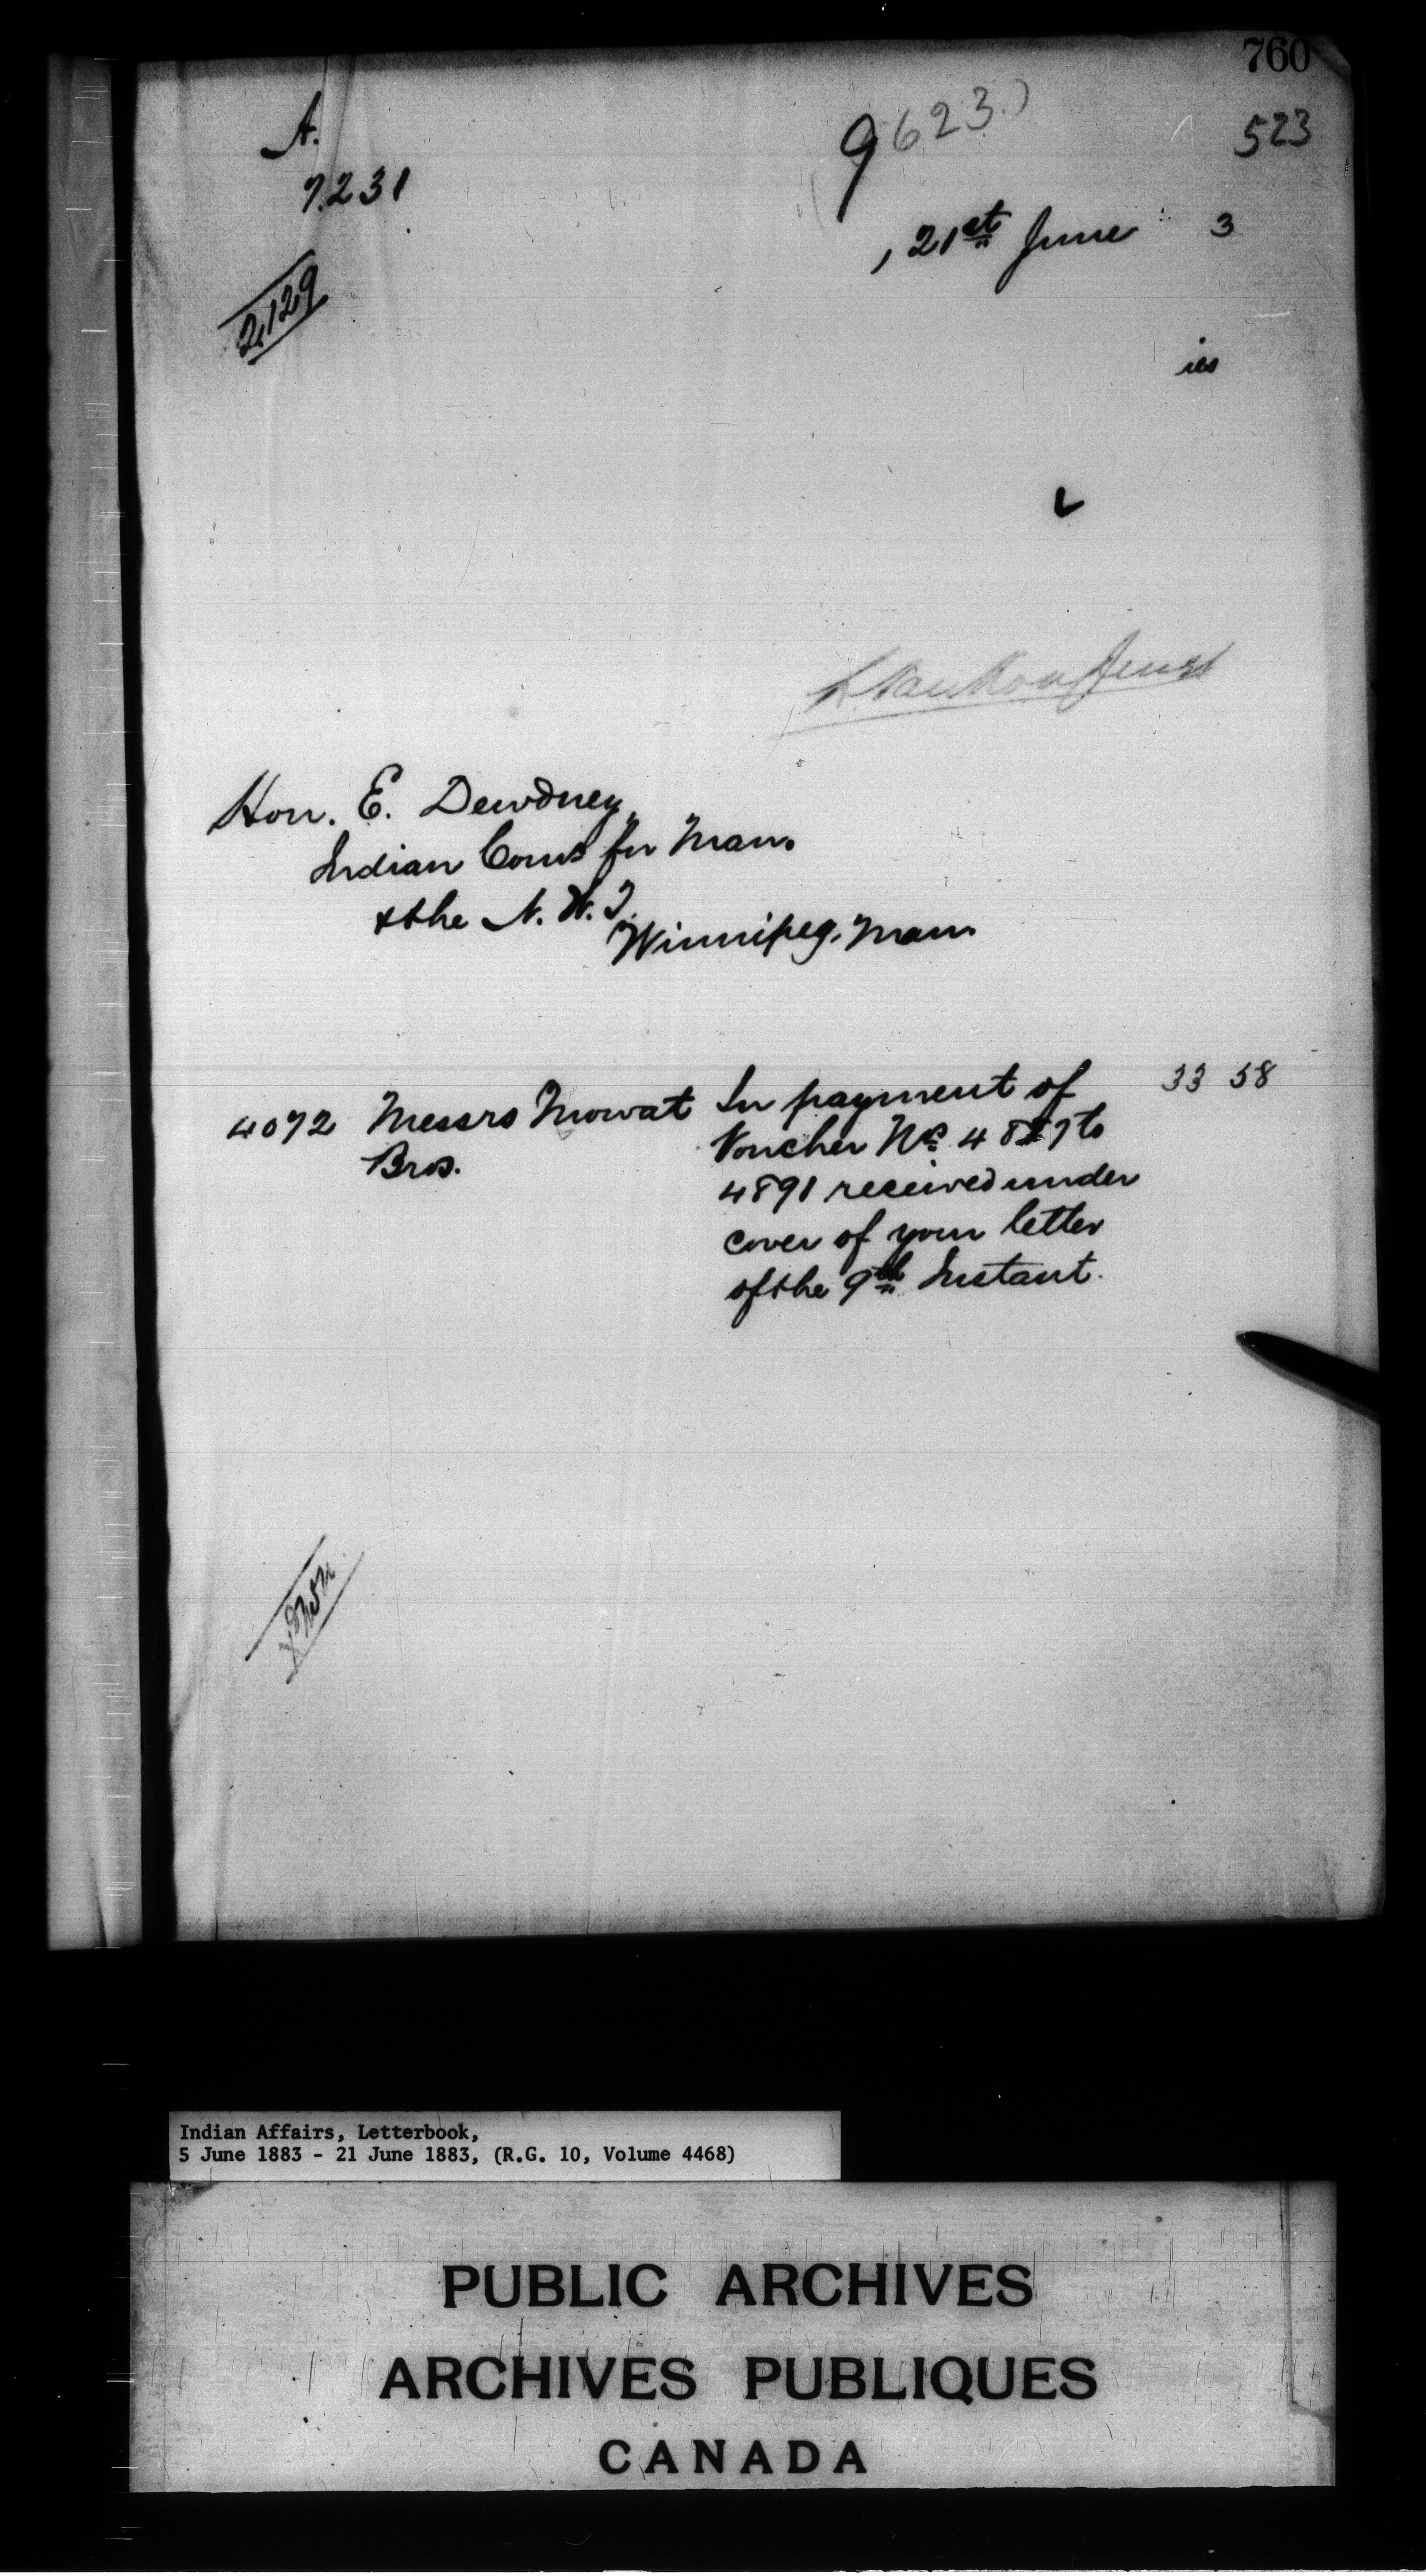 760
A.
7231
9623.)
523
, 21st June 3
2,129
ies
Hon. E. Dewdney,
Indian Coms for Man.
& the N. W. T.
Winnipeg, Man.
4072 Messrs Mowat Bros.
In payment of 33 58
Voucher Nos 4887 to
4891 received under
cover of your letter
of the 9th Instant.
Indian Affairs, Letterbook,
5 June 1883 - 21 June 1883, (R.G. 10, Volume 4468)
PUBLIC ARCHIVES
ARCHIVES PUBLIQUES
CANADA